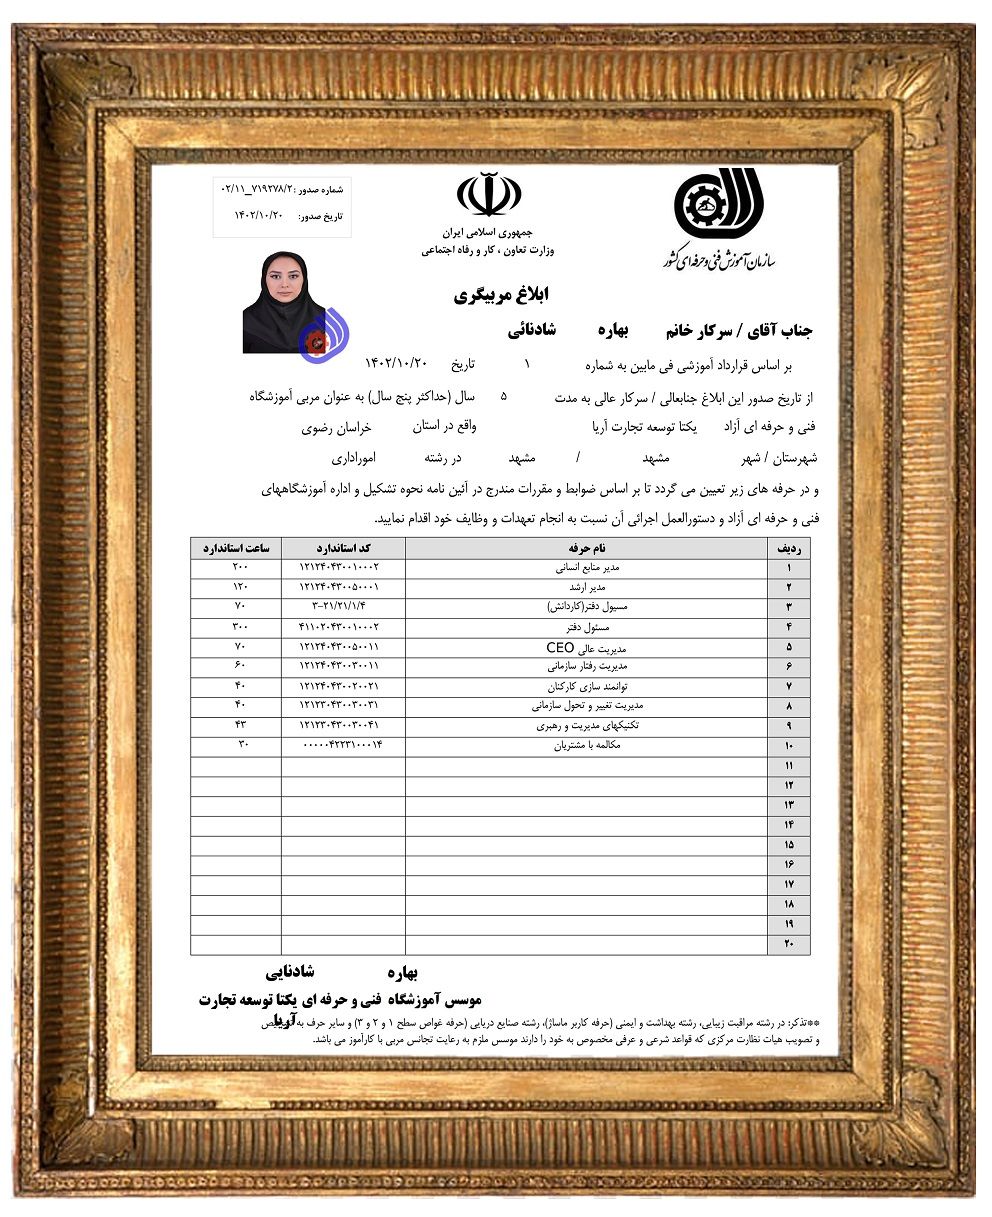 سازمان آموزش فنی و حرفه ای کشور
جمهوری اسلامی ایران
وزارت تعاون ، کار و رفاه اجتماعی
شماره صدور : ۰۲/۱۱_۷۱۹۲۷۸/۲
تاریخ صدور: ۱۴۰۲/۱۰/۲۰
ابلاغ مربیگری
جناب آقای / سرکار خانم بهاره شادنائی
بر اساس قرارداد آموزشی فی مابین به شماره ۱ تاریخ ۱۴۰۲/۱۰/۲۰
از تاریخ صدور این ابلاغ جنابعالی / سرکار عالی به مدت ۵ سال (حداکثر پنج سال) به عنوان مربی آموزشگاه
فنی و حرفه ای آزاد یکتا توسعه تجارت آریا واقع در استان خراسان رضوی
شهرستان / شهر مشهد / مشهد در رشته اموراداری
و در حرفه های زیر تعیین می گردد تا بر اساس ضوابط و مقررات مندرج در آئین نامه نحوه تشکیل و اداره آموزشگاههای
فنی و حرفه ای آزاد و دستورالعمل اجرائی آن نسبت به انجام تعهدات و وظایف خود اقدام نمایید.
ردیف نام حرفه کد استاندارد ساعت استاندارد
۱ مدیر منابع انسانی ۱۲۱۲۴۰۴۳۰۰۱۰۰۰۲ ۲۰۰
۲ مدیر ارشد ۱۲۱۲۴۰۴۳۰۰۵۰۰۰۱ ۱۲۰
۳ مسیول دفتر(کاردانش) ۳-۲۱/۲۱/۱/۴ ۷۰
۴ مسئول دفتر ۴۱۱۰۲۰۴۳۰۰۱۰۰۰۲ ۳۰۰
۵ مدیریت عالی CEO ۱۲۱۲۴۰۴۳۰۰۵۰۰۱۱ ۷۰
۶ مدیریت رفتار سازمانی ۱۲۱۲۴۰۴۳۰۰۳۰۰۱۱ ۶۰
۷ توانمند سازی کارکنان ۱۲۱۲۴۰۴۳۰۰۲۰۰۲۱ ۴۰
۸ مدیریت تغییر و تحول سازمانی ۱۲۱۲۳۰۴۳۰۰۳۰۰۳۱ ۴۰
۹ تکنیکهای مدیریت و رهبری ۱۲۱۲۳۰۴۳۰۰۳۰۰۴۱ ۴۳
۱۰ مکالمه با مشتریان ۰۰۰۰۰۴۲۲۳۱۰۰۰۱۴ ۳۰
۱۱
۱۲
۱۳
۱۴
۱۵
۱۶
۱۷
۱۸
۱۹
۲۰
بهاره شادنایی
موسس آموزشگاه فنی و حرفه ای یکتا توسعه تجارت
آریا
**تذکر: در رشته مراقبت زیبایی، رشته بهداشت و ایمنی (حرفه کاربر ماساژ)، رشته صنایع دریایی (حرفه غواص سطح ۱ و ۲ و ۳) و سایر حرف به
و تصویب هیات نظارت مرکزی که قواعد شرعی و عرفی مخصوص به خود را دارند موسس ملزم به رعایت تجانس مربی با کارآموز می باشد.